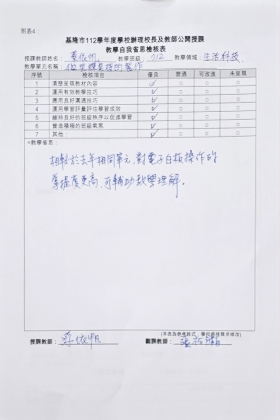 附表4
基隆市112學年度學校辦理校長及教師公開授課
教學自我省思檢核表
授課教師姓名: 教學班級: 712 教學領域: 生活科技
教學單元名稱:
序號 檢核項目 優良 普通 可改進 未呈現
1 清楚呈現教材內容 ✓ □ □ □
2 運用有效教學技巧 ✓ □ □ □
3 應用良好溝通技巧 ✓ □ □ □
4 運用學習評量評估學習成效 ✓ □ □ □
5 維持良好的班級秩序以促進學習 ✓ □ □ □
6 營造積極的班級氣氛 ✓ □ □ □
◆教學省思:
相較於去年相同單元,對電子白板操作的
掌握度更高,可輔助教學理解。
授課教師: 觀課教師: